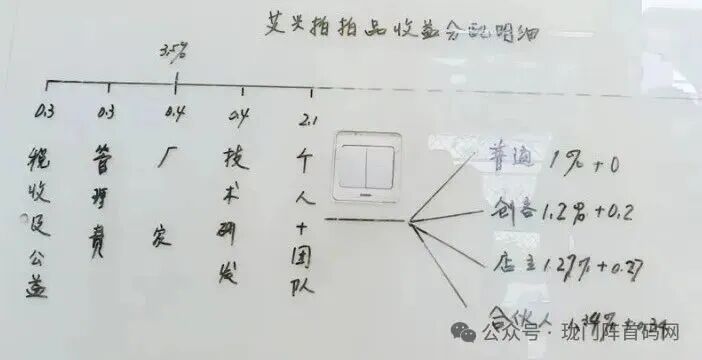 艾米拍拍品收益分配明细
3.5%
0.3 0.3 0.4 0.4 2.1
税收及公益
管理费
厂家
技术研发
个人+团队
普通 1%+0
创客 1.2%+0.2
店主 1.27%+0.27
合伙人 1.34%+0.34
公众号·珑门阵首码网